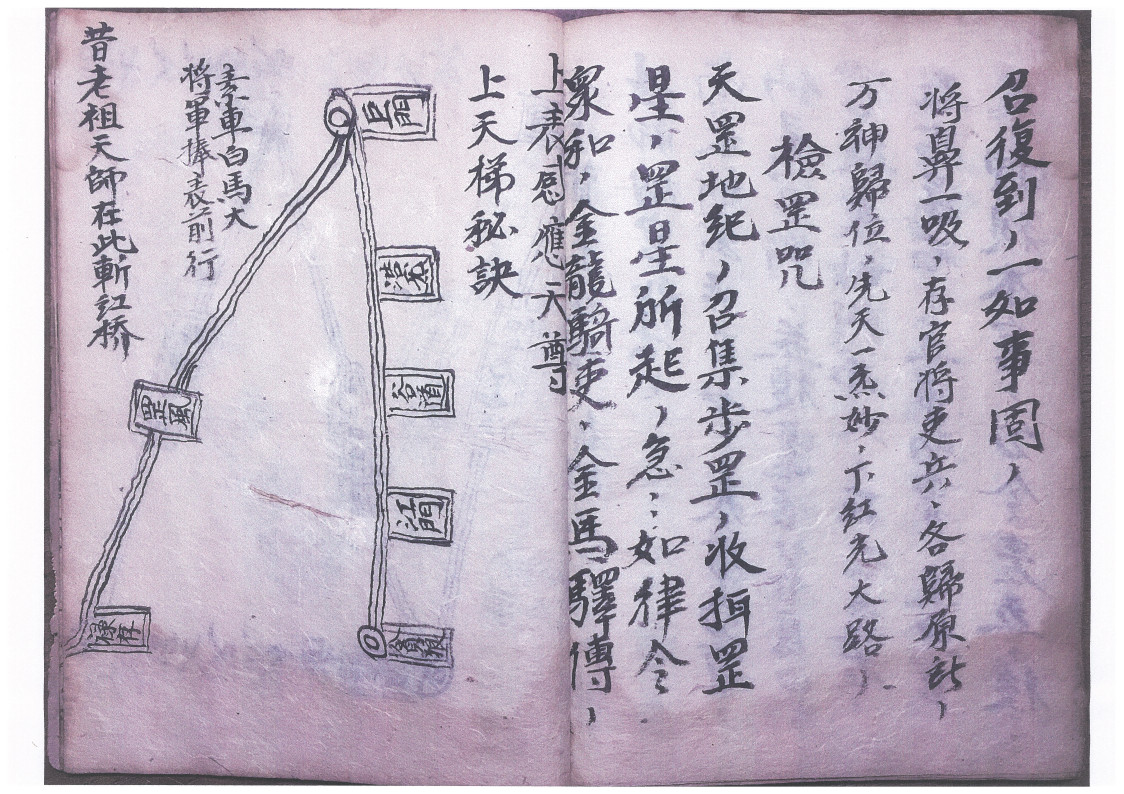 召復到，一如事固，
將鼻一吸，存官將吏兵，各歸原計，
万神歸位，先天一炁妙，下紅光大路，
檢罡咒
天罡地紀，召集步罡，收
罡
星，罡星所起，急：如律令
眾和，金龍騎吏，金馬驛傳，
上表感應天尊
上天梯秘訣
巨門
江門
祿存
軍白馬大
將軍捧表前行
昔老祖天師在此斬紅橋